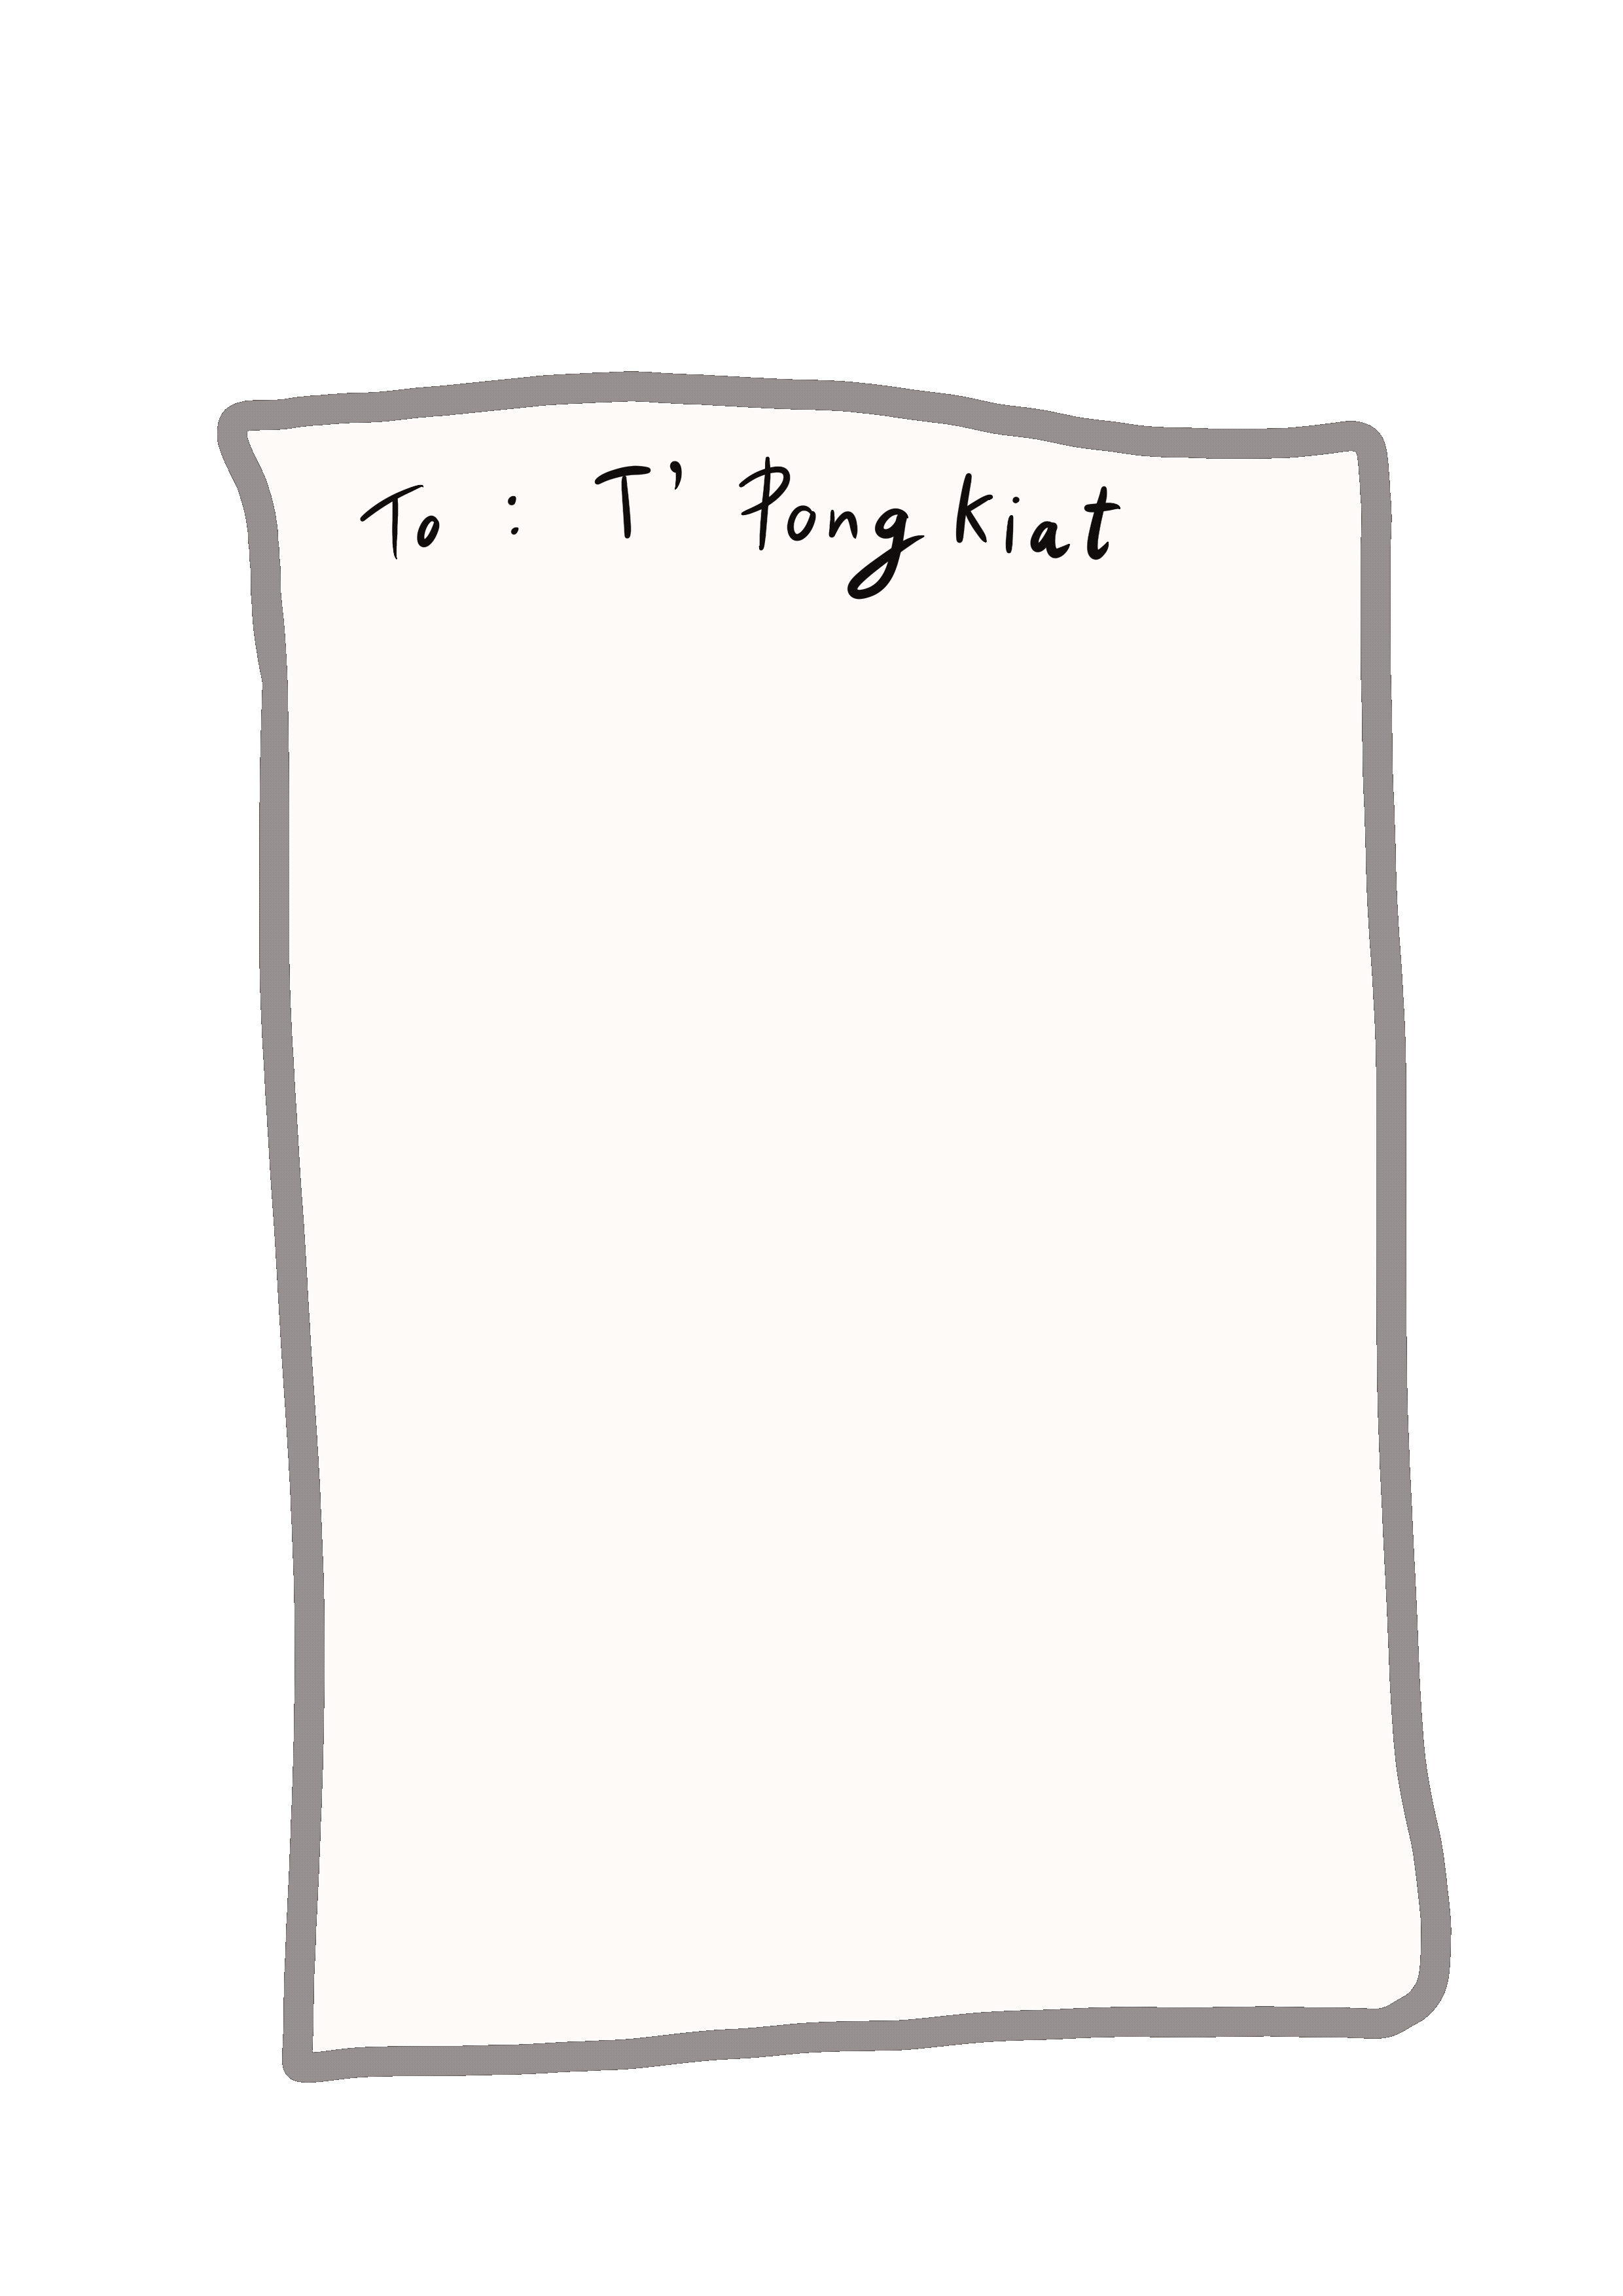 To : T' Pong Kiat